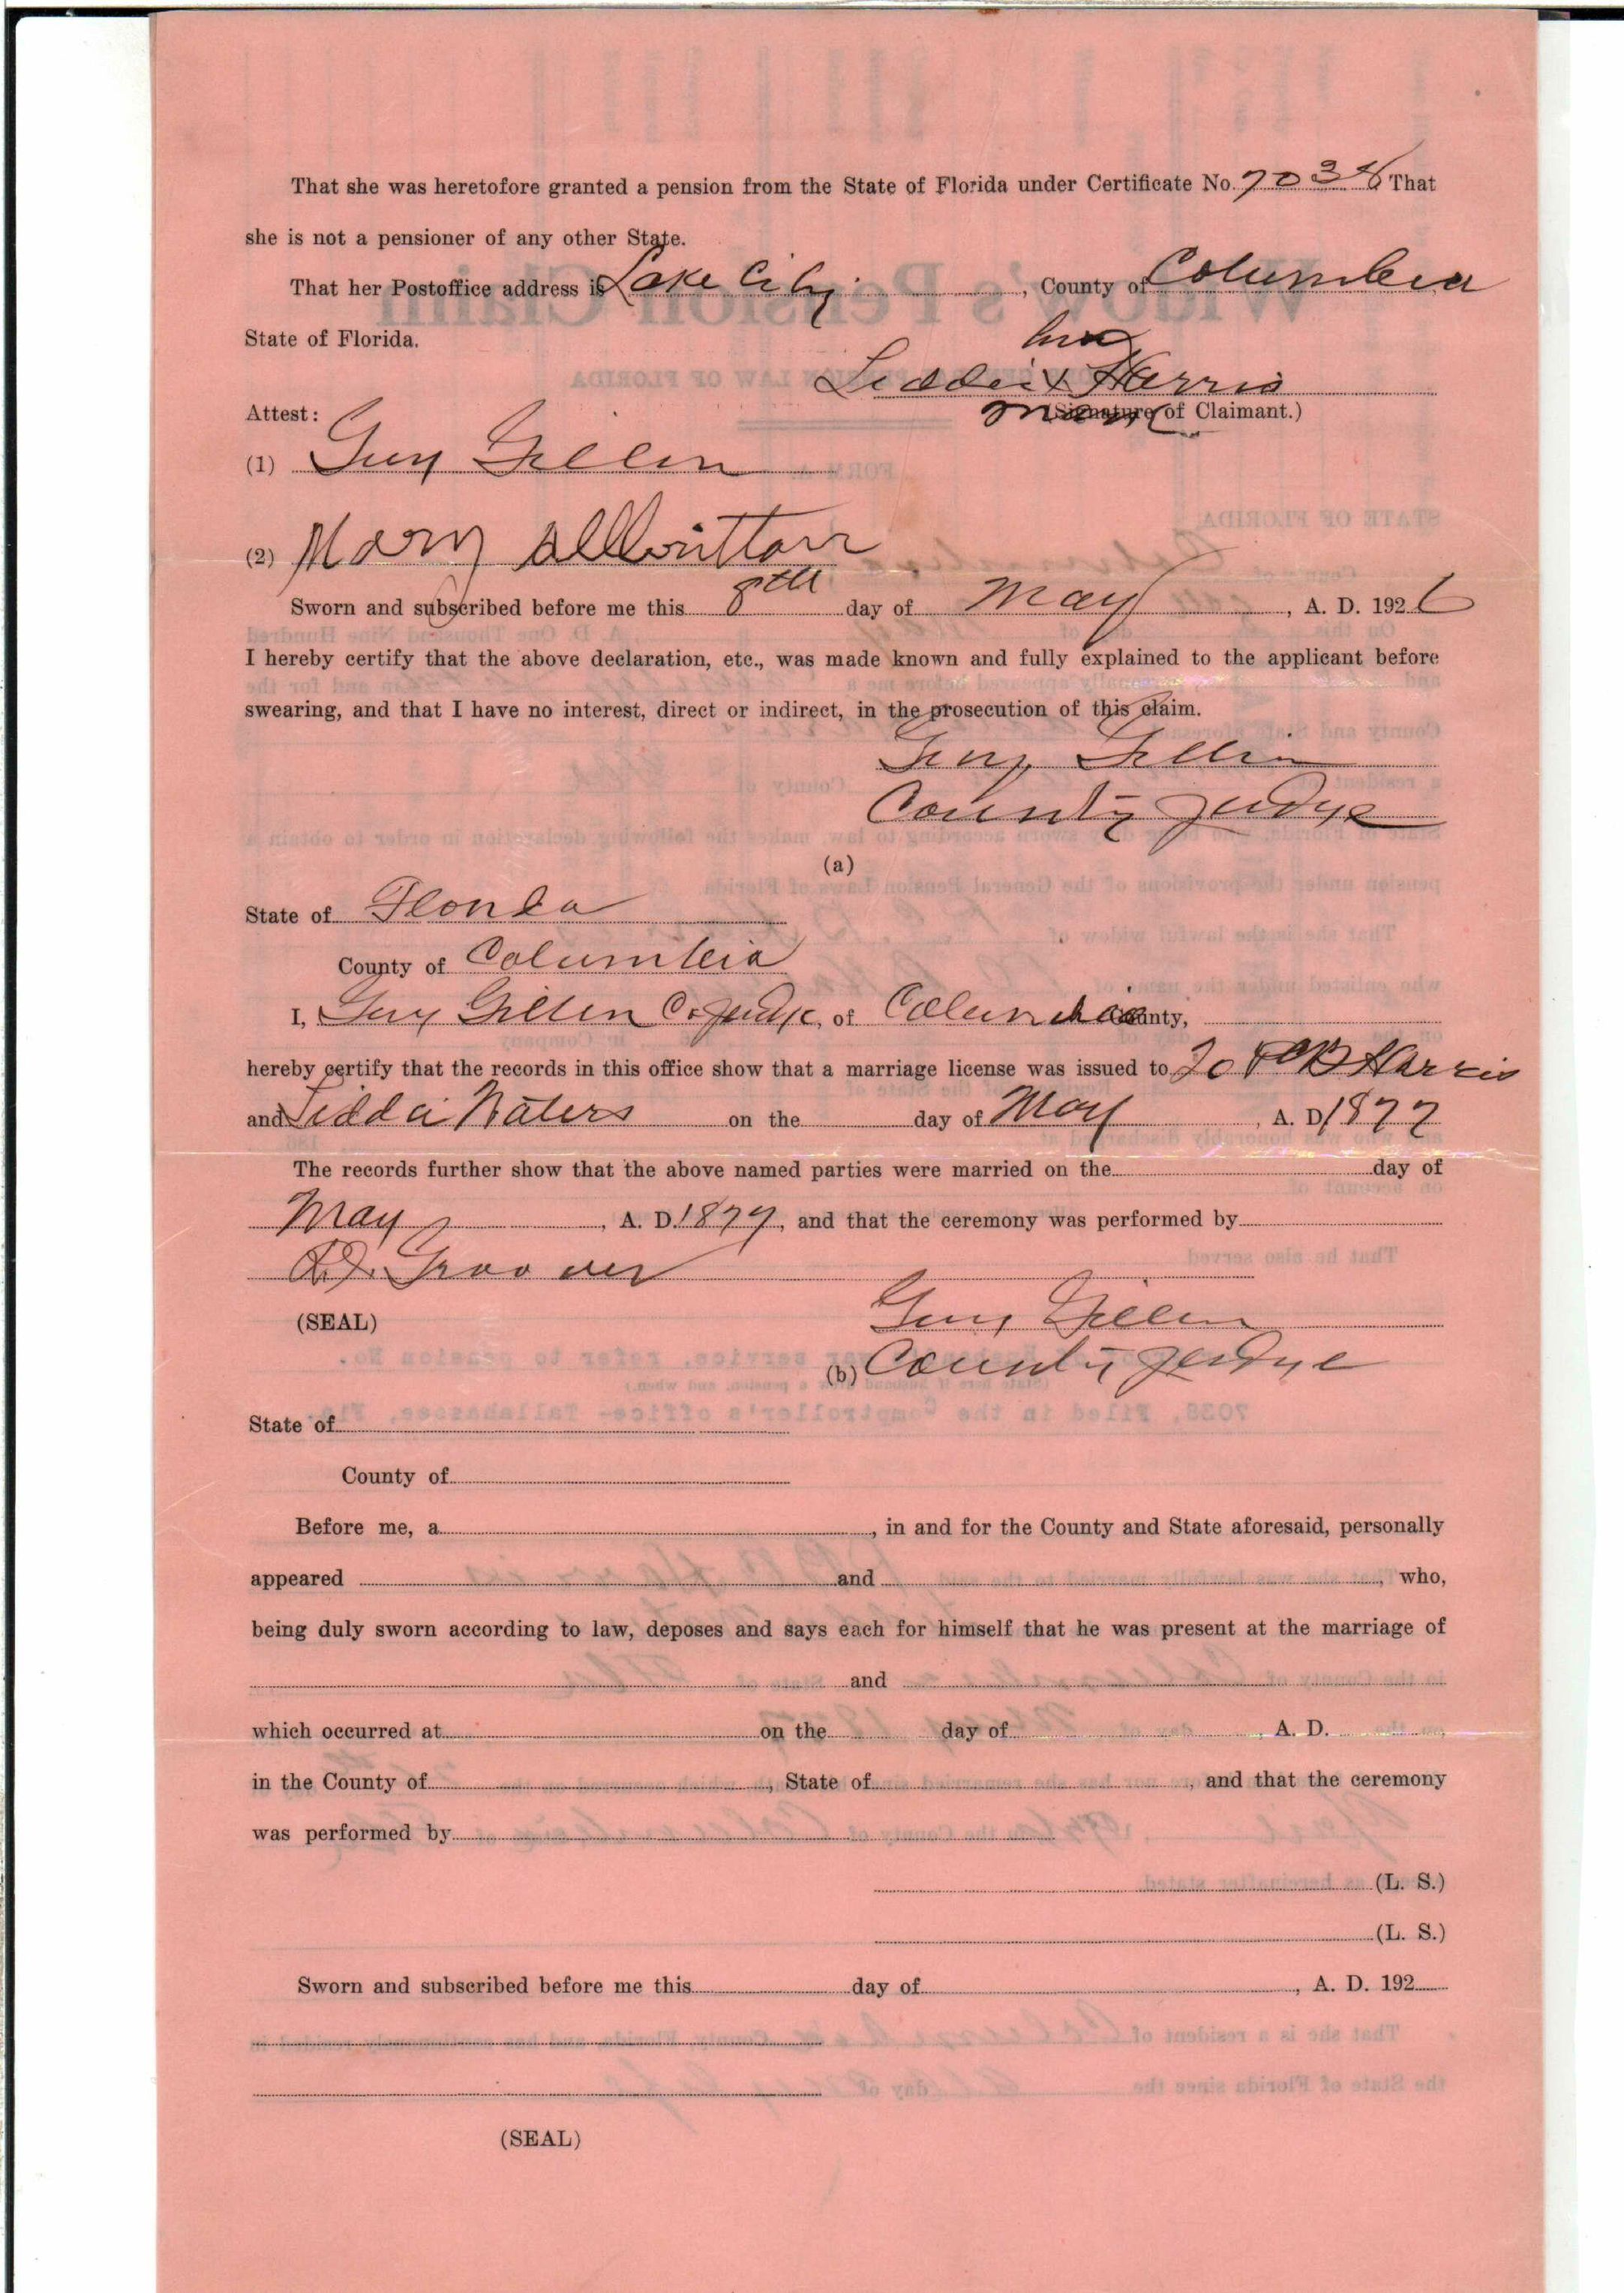 That she was heretofore granted a pension from the State of Florida under Certificate No. 7038 That
she is not a pensioner of any other State.
That her Postoffice address is Lake City, County of Columbia
State of Florida.
her
Liddie x Harris
mark
Attest: (Signature of Claimant.)
(1) Guy Gillen
(2) Mary
Sworn and subscribed before me this 8th day of May, A. D. 1926
I hereby certify that the above declaration, etc., was made known and fully explained to the applicant before
swearing, and that I have no interest, direct or indirect, in the prosecution of this claim.
Guy Gillen
County Judge
(a)
State of Florida
County of Columbia
I, Guy Gillen Co. Judge, of Columbia County,
hereby certify that the records in this office show that a marriage license was issued to B Harris
and Waters on the day of May, A. D. 1877
The records further show that the above named parties were married on the day of
May, A. D. 1877, and that the ceremony was performed by
Groover
(SEAL) Guy Gillen
(b) County Judge
State of
County of
Before me, a, in and for the County and State aforesaid, personally
appeared and, who,
being duly sworn according to law, deposes and says each for himself that he was present at the marriage of
and
which occurred at on the day of, A. D.
in the County of, State of, and that the ceremony
was performed by
(L. S.)
(L. S.)
Sworn and subscribed before me this day of, A. D. 192
(SEAL)